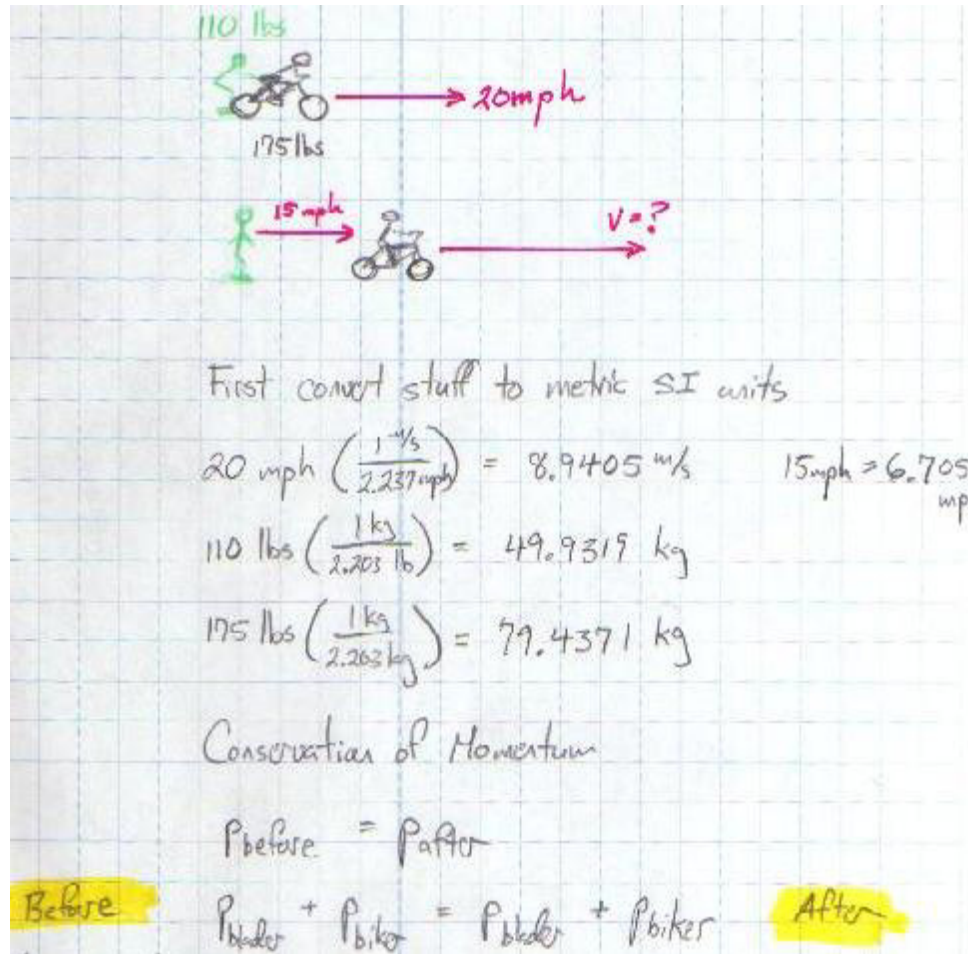 110 lbs
20mph
175 lbs
15 mph
V = ?
First convert stuff to metric SI units
20 mph (1 m/s / 2.237 mph) = 8.9405 m/s 15mph = 6.705
mp
110 lbs (1 kg / 2.203 lb) = 49.9319 kg
175 lbs (1 kg / 2.203 kg) = 79.4371 kg
Conservation of Momentum
Pbefore = Pafter
Before Pblader + Pbiker = Pblader + Pbiker After